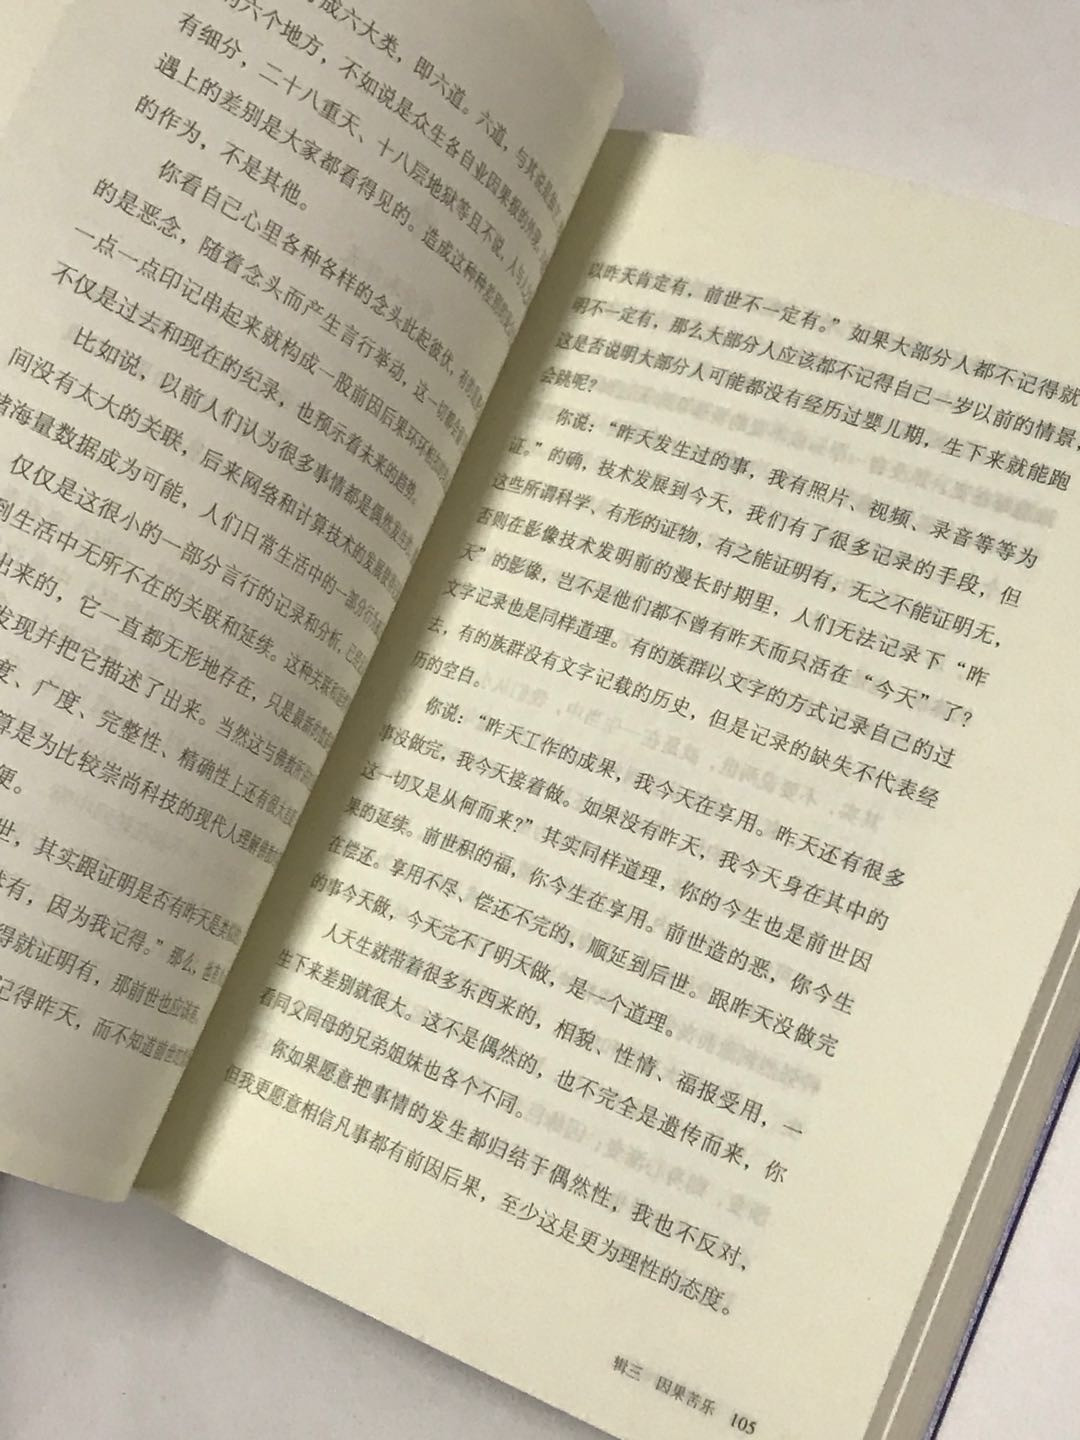 成六大类，即六道。六道，与其说是
六个地方，不如说是众生各自业因果报的外现。
有细分，二十八重天、十八层地狱等且不说，人与人之
遇上的差别是大家都看得见的。造成这种种差别的
的作为，不是其他。
你看自己心里各种各样的念头此起彼伏，有善
的是恶念，随着念头而产生言行举动，这一切都会
一点一点印记串起来就构成一股前因后果环环相
不仅是过去和现在的纪录，也预示着未来的趋势。
比如说，以前人们认为很多事情都是偶然发生
间没有太大的关联，后来网络和计算技术的发展使
储海量数据成为可能，人们日常生活中的一部分行为
仅仅是这很小的一部分言行的记录和分析，已
到生活中无所不在的关联和延续。这种关联和延
出来的，它一直都无形地存在，只是最新的
发现并把它描述了出来。当然这与佛教所
度、广度、完整性、精确性上还有很大
算是为比较崇尚科技的现代人理解佛教
便。
世，其实跟证明是否有昨天是类
有，因为我记得。”那么，也有
得就证明有，那前世也应该
记得昨天，而不知道前世
以昨天肯定有，前世不一定有。”如果大部分人都不记得就
明不一定有，那么大部分人应该都不记得自己一岁以前的情景，
这是否说明大部分人可能都没有经历过婴儿期，生下来就能跑
会跳呢？
你说：“昨天发生过的事，我有照片、视频、录音等等为
证。”的确，技术发展到今天，我们有了很多记录的手段，但
这些所谓科学、有形的证物，有之能证明有，无之不能证明无，
否则在影像技术发明前的漫长时期里，人们无法记录下“昨
天”的影像，岂不是他们都不曾有昨天而只活在“今天”了？
文字记录也是同样道理。有的族群以文字的方式记录自己的过
去，有的族群没有文字记载的历史，但是记录的缺失不代表经
历的空白。
你说：“昨天工作的成果，我今天在享用。昨天还有很多
事没做完，我今天接着做。如果没有昨天，我今天身在其中的
这一切又是从何而来？”其实同样道理，你的今生也是前世因
果的延续。前世积的福，你今生在享用。前世造的恶，你今生
在偿还。享用不尽、偿还不完的，顺延到后世。跟昨天没做完
的事今天做，今天完不了明天做，是一个道理。
人天生就带着很多东西来的，相貌、性情、福报受用，一
生下来差别就很大。这不是偶然的，也不完全是遗传而来，你
看同父同母的兄弟姐妹也各个不同。
你如果愿意把事情的发生都归结于偶然性，我也不反对，
但我更愿意相信凡事都有前因后果，至少这是更为理性的态度。
辑三 因果苦乐 105